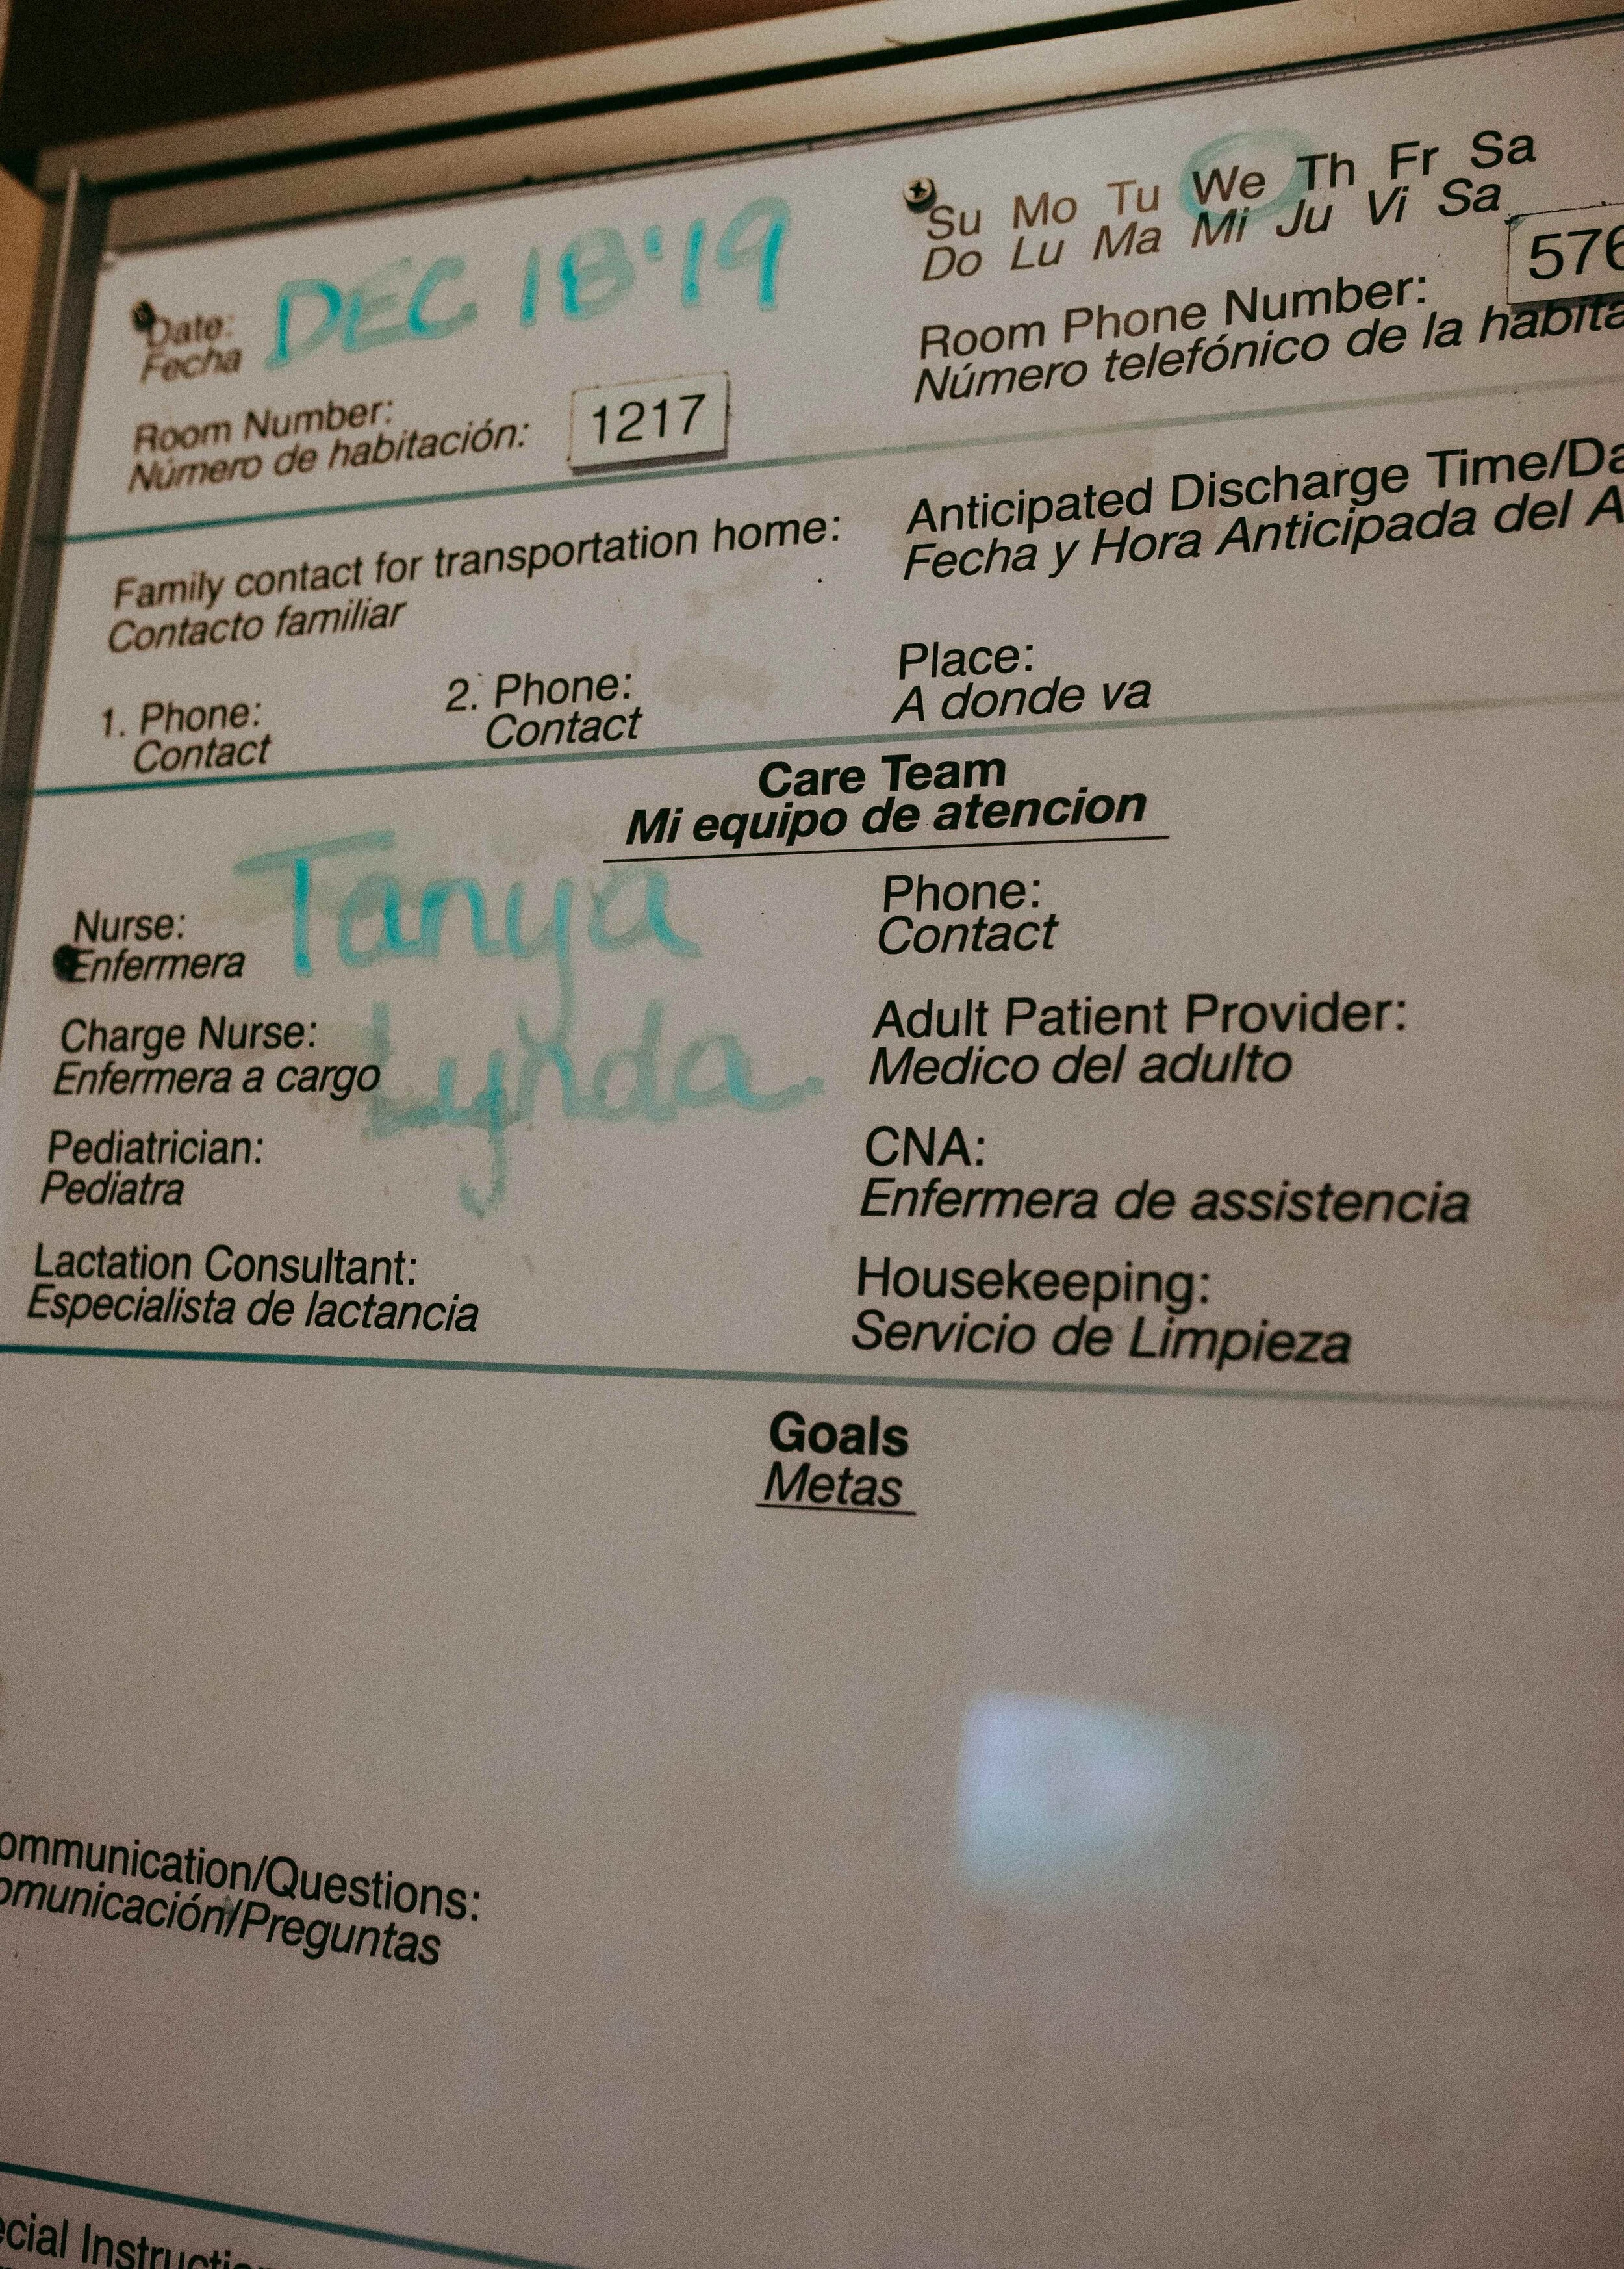 Date: DEC 18 '19
Fecha
Su Mo Tu We Th Fr Sa
Do Lu Ma Mi Ju Vi Sa
Room Number: 1217
Número de habitación:
Room Phone Number: 576
Número telefónico de la habita
Family contact for transportation home:
Contacto familiar
1. Phone:
Contact
2. Phone:
Contact
Anticipated Discharge Time/Da
Fecha y Hora Anticipada del A
Place:
A donde va
Care Team
Mi equipo de atencion
Nurse: Tanya
Enfermera
Phone:
Contact
Charge Nurse: Lynda.
Enfermera a cargo
Adult Patient Provider:
Medico del adulto
Pediatrician:
Pediatra
CNA:
Enfermera de assistencia
Lactation Consultant:
Especialista de lactancia
Housekeeping:
Servicio de Limpieza
Goals
Metas
ommunication/Questions:
omunicación/Preguntas
ecial Instructio